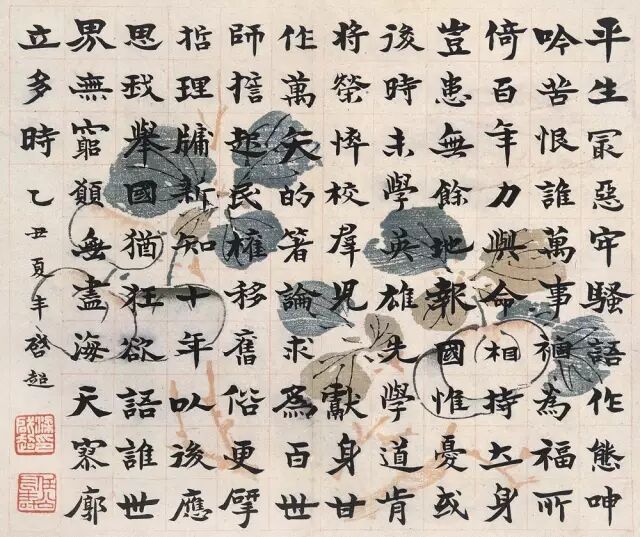 平生冣惡牢騷語作態呻
吟苦恨誰萬事禍為福所
倚百年力與命相持立身
豈患無餘地報國惟憂或
後時未學英雄先學道肯
將榮悴校羣兒獻身甘
作萬矢的著論求為百世
師擔起民權移舊俗更擘
哲理牖新知十年以後應
思我舉國猶狂欲語誰世
界無窮願無盡海天寥廓
立多時 乙丑夏啓超